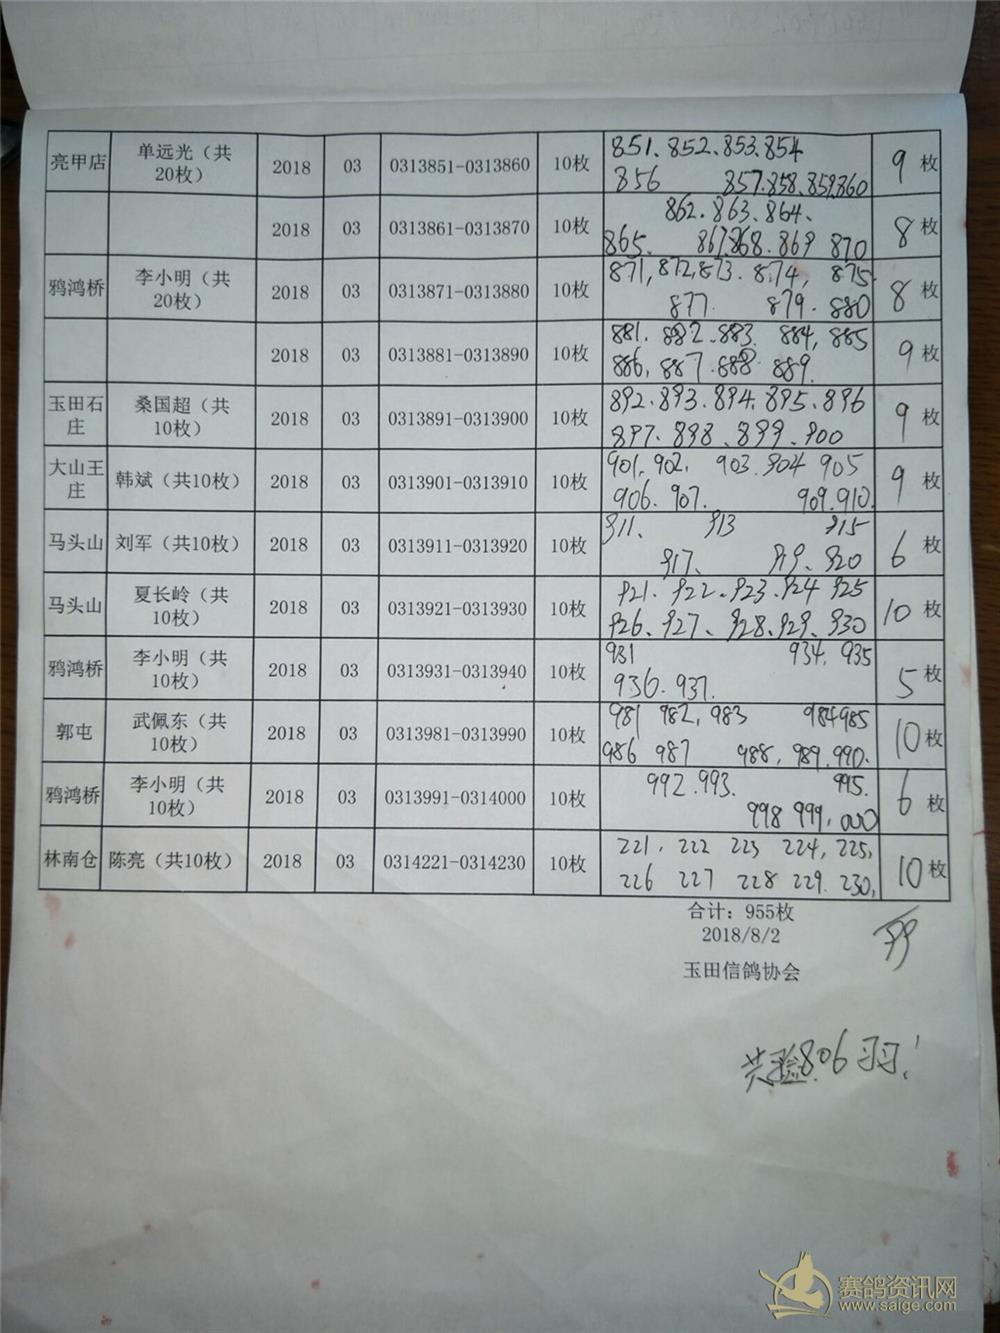 亮甲店 单远光（共20枚） 2018 03 0313851-0313860 10枚 851、852、853、854 856 857、858、859、860 9枚
2018 03 0313861-0313870 10枚 862、863、864、865、867、868、869 870 8枚
鸦鸿桥 李小明（共20枚） 2018 03 0313871-0313880 10枚 871，872，873．874，875 877． 879．880 8枚
2018 03 0313881-0313890 10枚 881．882．883． 884，885 886，887．888 889． 9枚
玉田石庄 桑国超（共10枚） 2018 03 0313891-0313900 10枚 892．893．894．895．896 897．898、899、900 9枚
大山王庄 韩斌（共10枚） 2018 03 0313901-0313910 10枚 901，902， 903．904 905 906．907． 909．910． 9枚
马头山 刘军（共10枚） 2018 03 0313911-0313920 10枚 911、 913 915 917、 919、920 6枚
马头山 夏长岭（共10枚） 2018 03 0313921-0313930 10枚 921．922、923．924 925 926、927、928、929、930 10枚
鸦鸿桥 李小明（共10枚） 2018 03 0313931-0313940 10枚 931 934，935 936．937． 5枚
郭屯 武佩东（共10枚） 2018 03 0313981-0313990 10枚 981 982，983 984 985 986 987 988，989，990． 10枚
鸦鸿桥 李小明（共10枚） 2018 03 0313991-0314000 10枚 992．993． 995． 998 999，000 6枚
林南仓 陈亮（共10枚） 2018 03 0314221-0314230 10枚 221，222 223 224，225， 226 227 228 229．230， 10枚
合计：955枚
2018/8/2
玉田信鸽协会
共验806羽！
赛鸽资讯网
www.saige.com